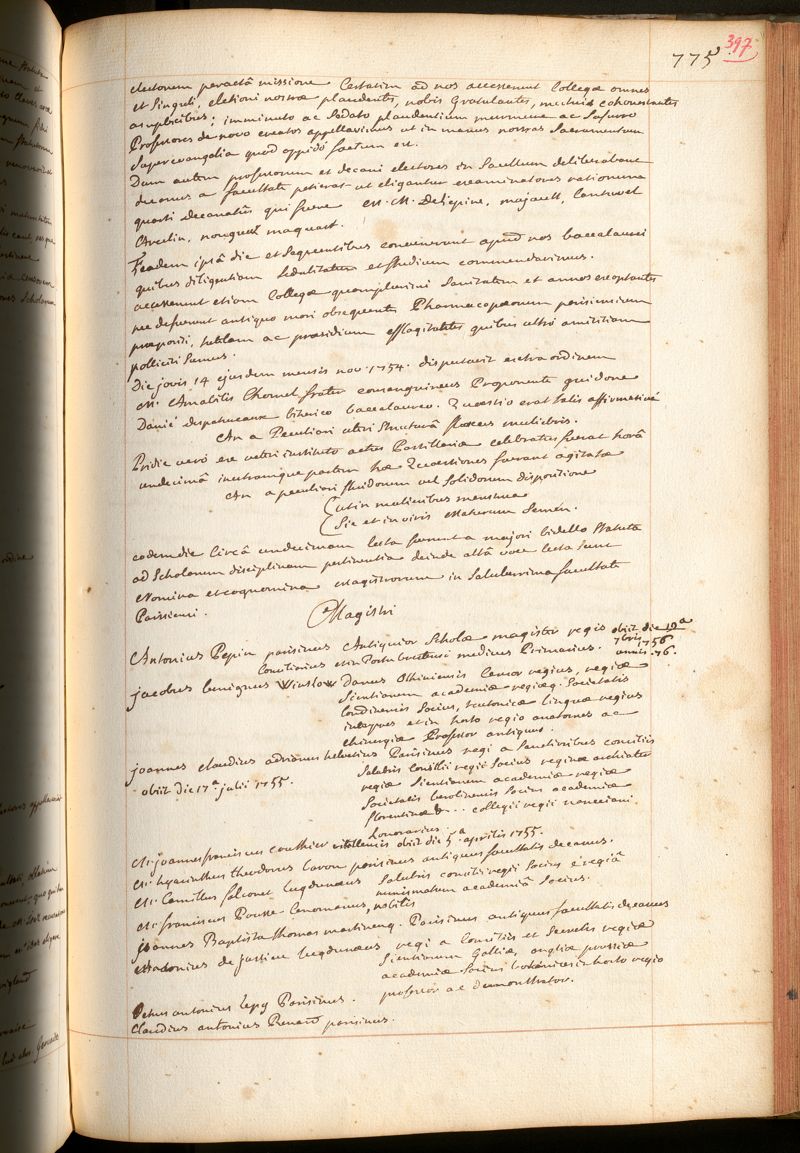 775
397
electorum peractâ missione Certatim ad nos accesserunt Collegæ omnes
et Singuli, electioni nostræ plaudentes, nobis Gratulantes, cohonestantes
amplexibus; imminuto ac Sedato plaudentium murmure ac Susurro
Professores de novo creatos appellavimus ut in manus nostras Sacramentum
Super evangelia quod oppidò factum est.
Dum autem professorum et decani electores in Sacellum deliberabant
decanus a facultate petierat ut eligantur examinatores rationum
quarti decanatûs qui fuere M. M. De l'épine, majault,
Arcelin, macquart.
Eadem ipsâ die et Sequentibus convenerunt apud nos baccalaurei
quibus diligentiam Sedulitatem et Studium commendavimus.
accesserunt etiam Collegæ quamplurimi Sanitatem et annos exoptantes
nec defuerunt antiquo mori obsequentes Pharmacopæorum parisiensium
præpositi, tutelam ac præsidium efflagitantes quibus ultrò amicitiam
polliciti Sumus.
Die jovis 14 ejusdem mensis nov. 1754. disputavit extra ordinem
M. Amabilis Chomel frater consanguineus Proponente guidone
Daniè baccalaureo. Quæstio erat talis affirmativè
An a Peculiari uteri Structurâ fluxus muliebris.
Pridie verò ex veteri instituto actus Pastillariæ celebratus fuerat horâ
undecimâ in utramque partem hæ Quæstiones fuerant agitatæ
An a peculiari fluidorum vel Solidorum dispositione
ut in mulieribus menstrua
Sic et in viris Maturum Semen.
eadem die Circâ undecimam lecta fuerunt a majori bidello Statuta
ad Scholarum disciplinam pertinentia deinde altâ voce lecta sunt
Nomina et cognomina Magistrorum in Saluberrima facultate
Parisiensi.
Magistri
Antonius Pepin parisinus Antiquior Scholæ magister regis obiit die 19a
Consiliarius et in medicus Primarius. 7bris 1756
annis. 76.
jacobus benignus Winslow Danus Othiniensis Censor regius, regiæ
Scientiarum academiæ regiæq. Societatis
Londinensis Socius, teutonicæ linguæ regius
interpres et in horto regio anatomes ac
chirurgiæ Professor antiquus.
joannes claudius adrianus helvetius Parisinus regi a Sanctioribus consiliis
obiit die 17a julii 1755. Salubris Consilii regii Socius reginæ archiater
regiæ Scientiarum academiæ regiæ
Societatis berolinensis Socius academiæ
florentinæ & ... collegii regii nanceiani
honorarius.
M. joannes franciscus couthier vitelliensis obiit die 5a. aprilis 1755.
M. hyacinthus theodorus baron parisinus antiquus facultatis decanus.
M. Camillus falconet Lugdunæus Salubris consilii regii Socius è regiâ
numismatum academiâ Socius.
M. franciscus Pousse Cenomanus, nobilis
joannes Baptista thomas martinenq. Parisinus antiquus facultatis decanus
Antonius de jussieu lugdunæus regi a Consiliis et Secretis regiæ
Scientiarum Galliæ, angliæ prussiæ
academiæ Socius botanices in horto regio
professor ac Demonstrator.
Petrus antonius lepy Parisinus.
Claudius antonius Renard parisinus.